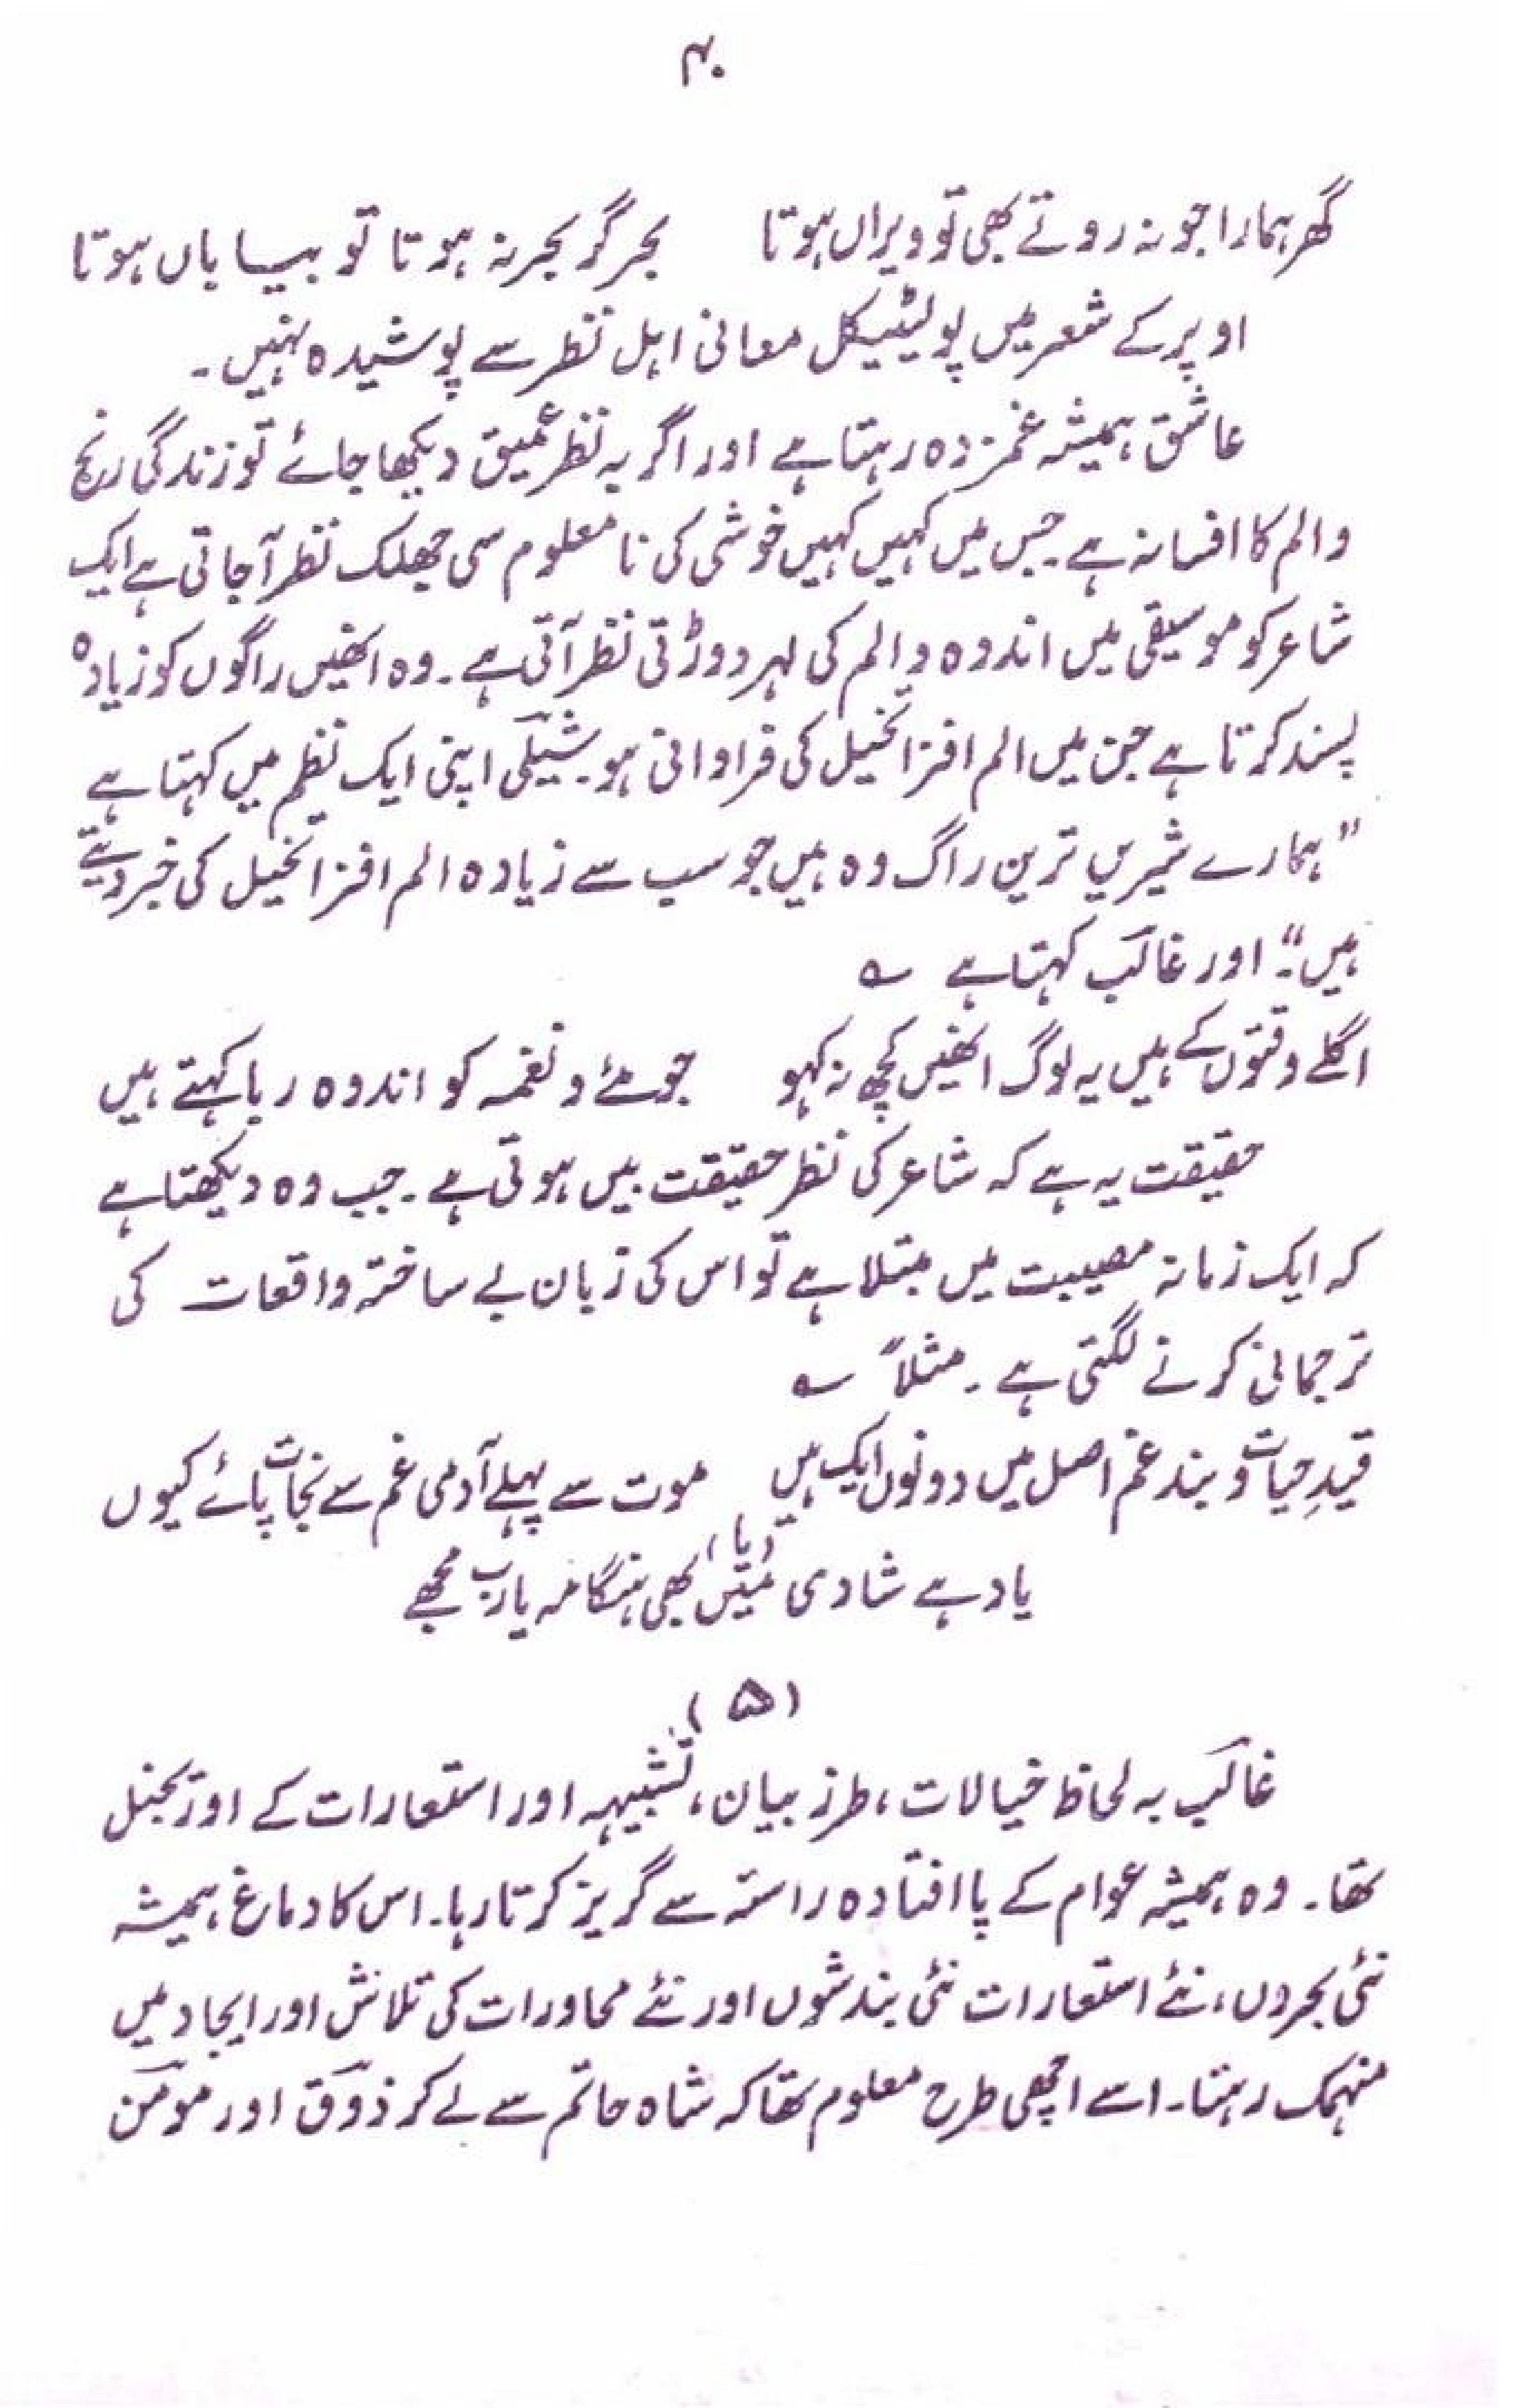 ۴۰
گھر ہمارا جو نہ روتے بھی تو ویراں ہوتا      بحر گر بحر نہ ہوتا تو بیاباں ہوتا
اوپر کے شعر میں پولیٹیکل معانی اہل نظر سے پوشیدہ نہیں۔
عاشق ہمیشہ غمزدہ رہتا ہے اور اگر بہ نظر عمیق دیکھا جائے تو زندگی رنج
والم کا افسانہ ہے۔ جس میں کہیں کہیں خوشی کی نا معلوم سی جھلک نظر آجاتی ہے ایک
شاعر کو موسیقی میں اندوہ و الم کی لہر دوڑتی نظر آتی ہے۔ وہ انھیں راگوں کو زیادہ
پسند کرتا ہے جن میں الم افزا تخیل کی فراوانی ہو۔ شیلی اپنی ایک نظم میں کہتا ہے
"ہمارے شیریں ترین راگ وہ ہیں جو سب سے زیادہ الم افزا تخیل کی خبر دیتے
ہیں"۔ اور غالب کہتا ہے ؎
اگلے وقتوں کے ہیں یہ لوگ انھیں کچھ نہ کہو      جو مئے و نغمہ کو اندوہ ربا کہتے ہیں
حقیقت یہ ہے کہ شاعر کی نظر حقیقت بیں ہوتی ہے۔ جب وہ دیکھتا ہے
کہ ایک زمانہ مصیبت میں مبتلا ہے تو اس کی زبان بے ساختہ واقعات کی
ترجمانی کرنے لگتی ہے۔ مثلاً ؎
قیدِ حیات و بند غم اصل میں دونوں ایک ہیں      موت سے پہلے آدمی غم سے نجات پائے کیوں
(یا)
یاد ہے شادی میں بھی ہنگامہ یارب مجھے
(۵)
غالب بہ لحاظ خیالات، طرز بیان، تشبیہہ اور استعارات کے اوریجنل
تھا۔ وہ ہمیشہ عوام کے پا افتادہ راستہ سے گریز کرتا رہا۔ اس کا دماغ ہمیشہ
نئی بحروں، نئے استعارات نئی بندشوں اور نئے محاورات کی تلاش اور ایجاد میں
منہمک رہتا۔ اسے اچھی طرح معلوم تھا کہ شاہ حاتم سے لے کر ذوق اور مومن